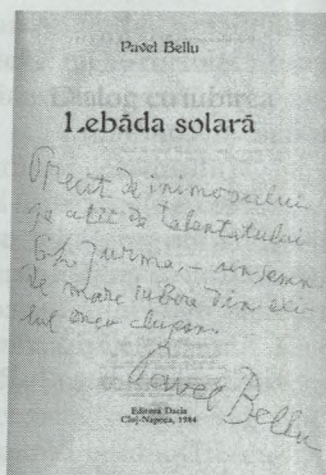 Pavel Bellu
Lebăda solară
Precit de inimosului
pe atît de talentatului
Gh. Jurma, – un semn
de mare iubire din exi-
lul meu clujean.
Pavel Bellu
Editura Dacia
Cluj-Napoca, 1984